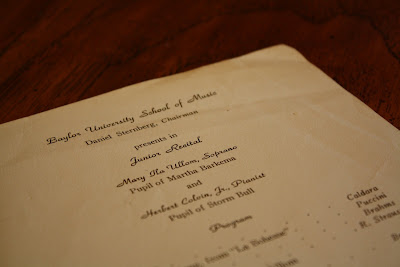 Baylor University School of Music
Daniel Sternberg, Chairman
presents in
Junior Recital
Mary Ila Ullom, Soprano
Pupil of Martha Barkema
and
Herbert Colvin, Jr., Pianist
Pupil of Storm Bull
Program
Caldara
from "La Boheme" Puccini
Brahms
R. Strauss